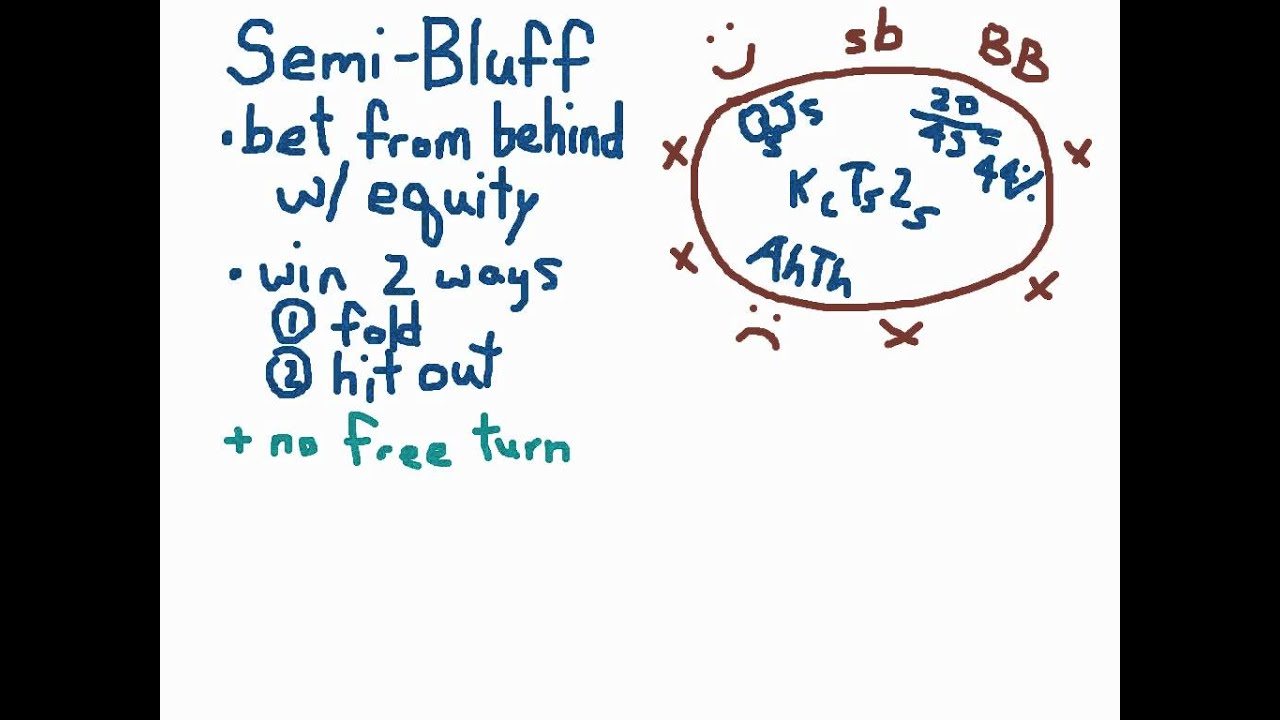 Semi-Bluff
• bet from behind
w/ equity
• win 2 ways
① fold
② hit out
+ no free turn
sb
BB
x
x
x
x
x
QsJs
20/45 = 44%
KcTs2s
AhTh